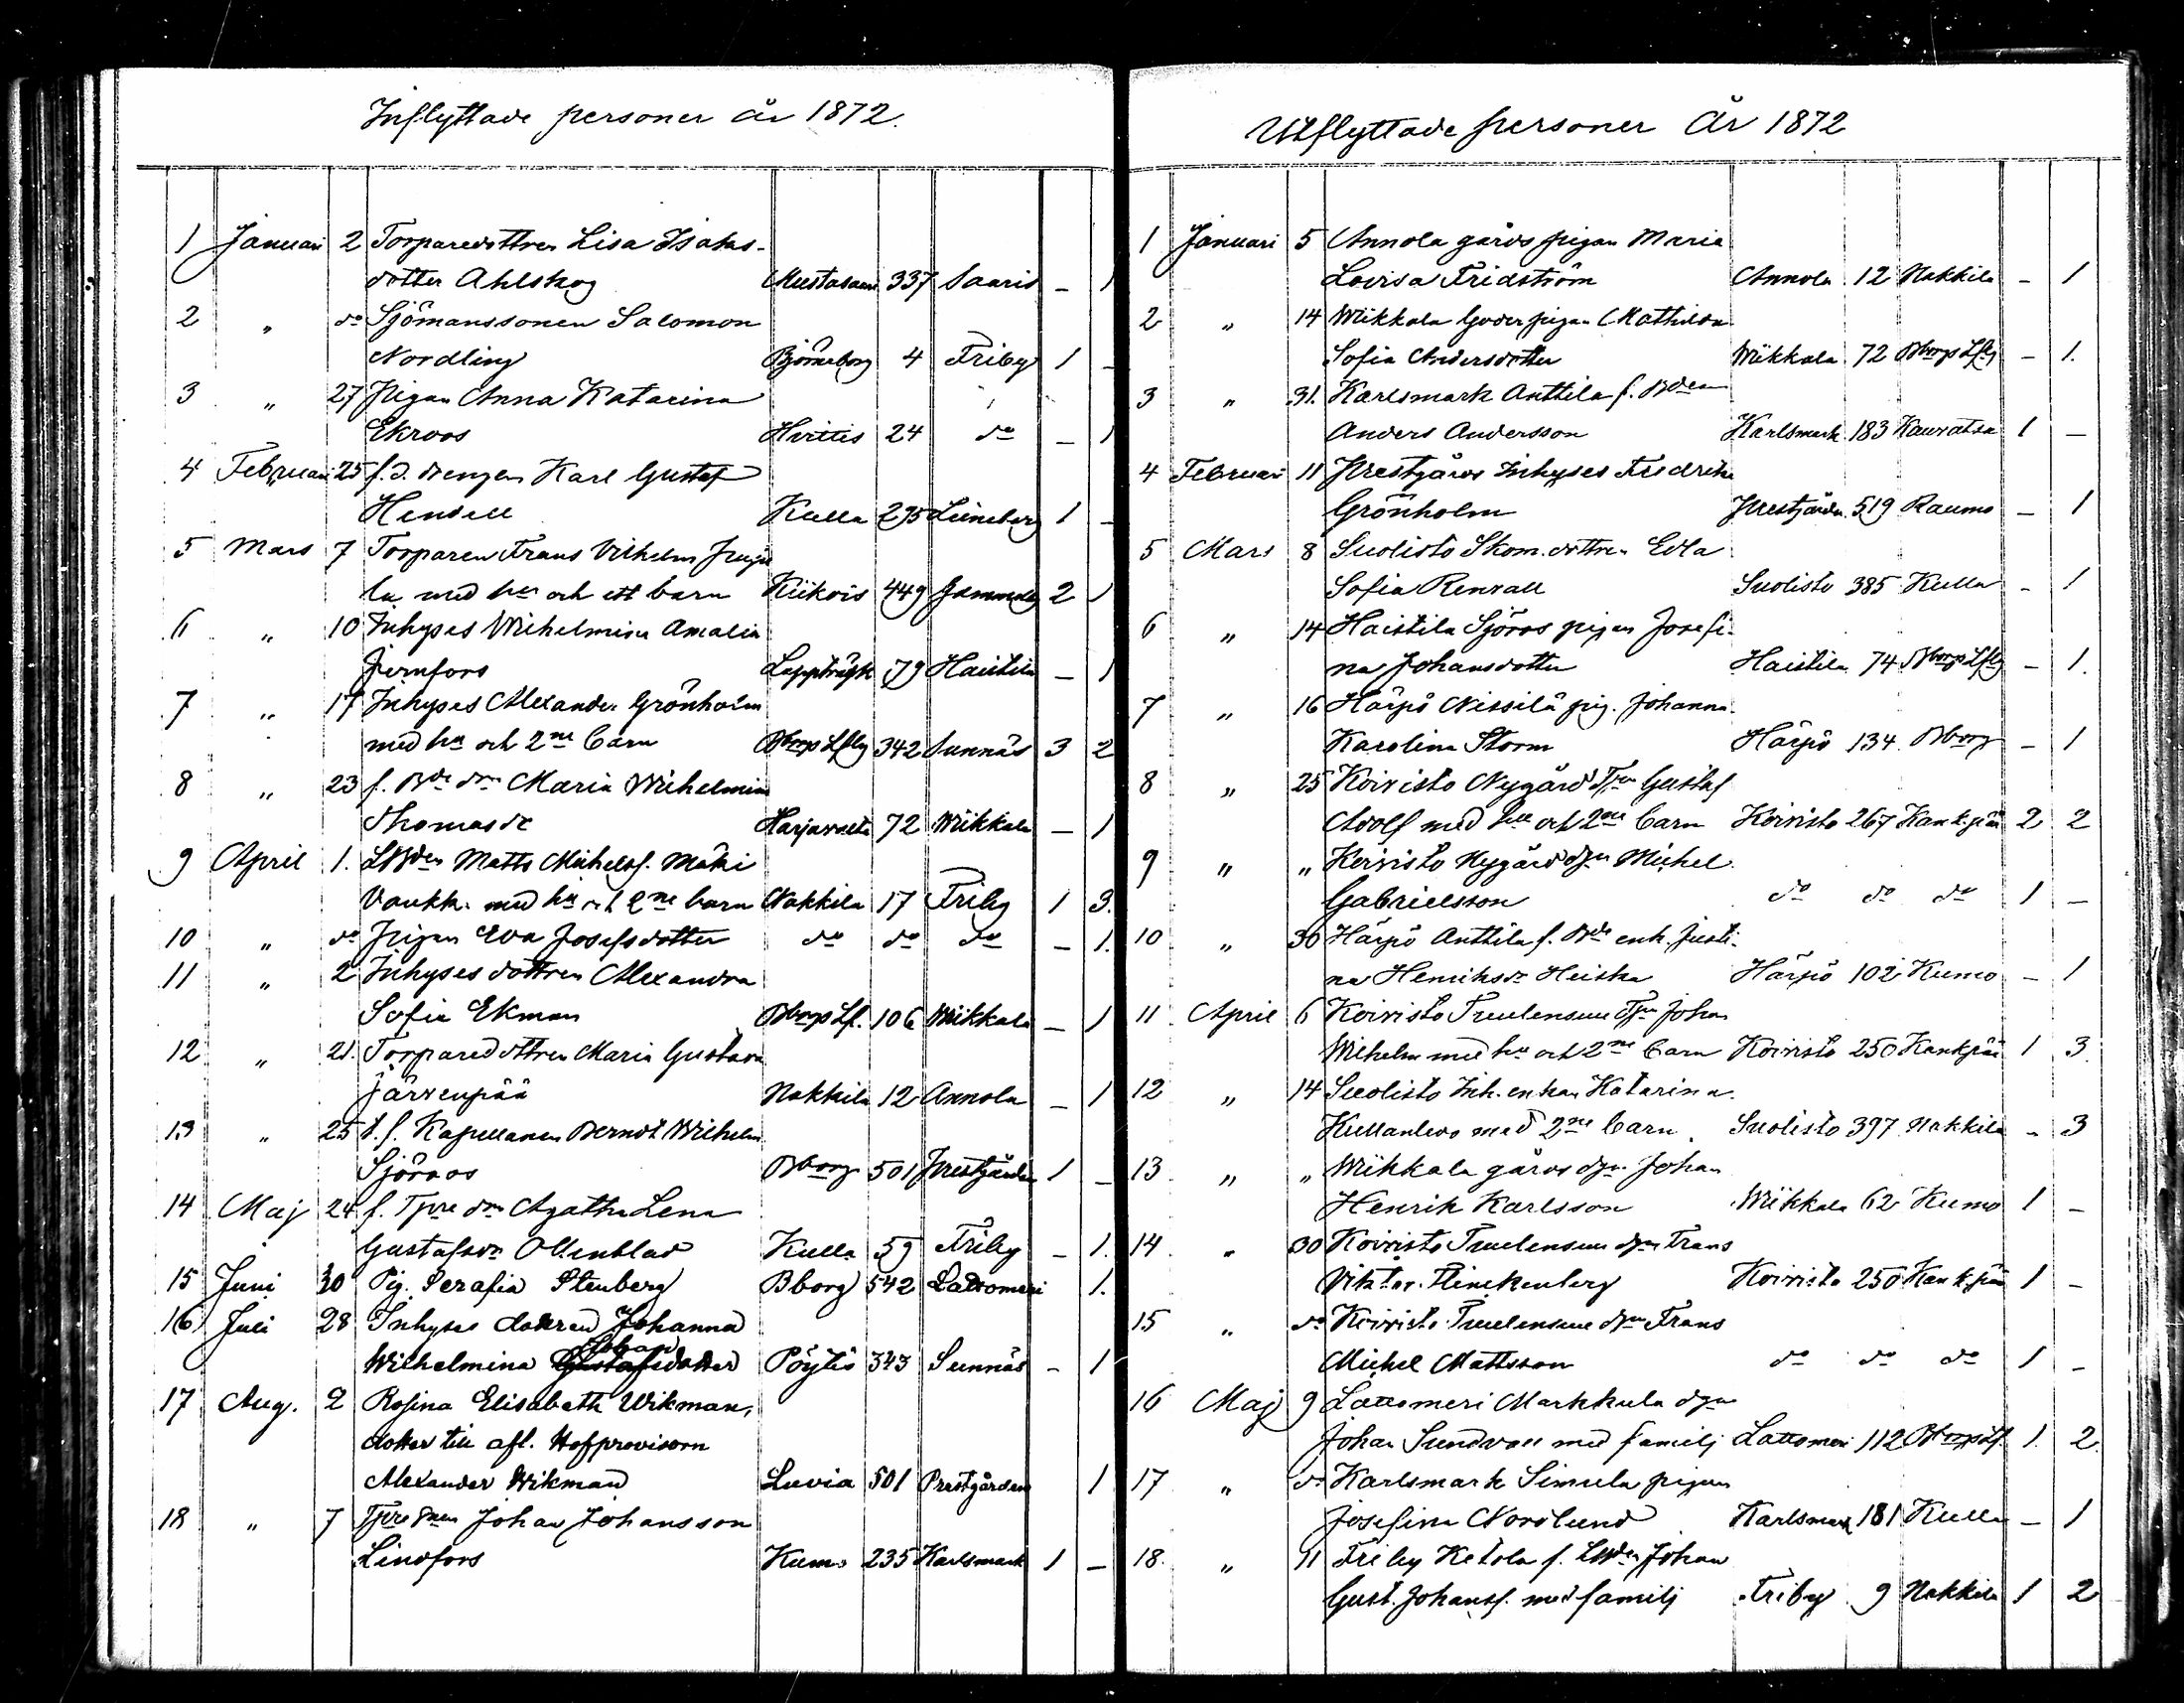 Inflyttade personer år 1872.
1 Januari 2 Torparedottren Lisa Isaks-
dotter Ahlskog Mustasaari 337 Saaris – 1
2 „ do Sjömanssonen Salomon
Nordling Björneborg 4 Friby 1 –
3 „ 27 Pigan Anna Katarina
Ekroos Hvittis 24 do – 1
4 Februari 25 f.d. drengen Karl Gustaf
Hendell Kulla 295 Leineberg 1 –
5 Mars 7 Torparen Frans Vilhelm
la med hu och ett barn Kiikois 449 Gammelby 2 1
6 „ 10 Inhyses Wilhelmina Amalia
Jernfors Lappträsk 79 Haistila – 1
7 „ 17 Inhyses Alexander Grönholm
med hu och 2ne barn Bborgs Lfg 342 Sunnäs 3 2
8 „ 23 f. Bde drn Maria Wilhelmina
Thomasdr Harjavalta 72 Wiikkala – 1
9 April 1. LBden Matts Michelsf. Mäki
Vaukk. med hu och 2ne barn Nakkila 17 Friby 1 3.
10 „ do Pigan Eva Josefsdotter do do do – 1.
11 „ 2 Inhyses dottren Alexandra
Sofia Ekman Bborgs Lf. 106 Wiikkala – 1
12 „ 21. Torparedottren Maria Gustava
Järvenpää Nakkila 12 Annola – 1
13 „ 25 t.f. Kapellanen Berndt Wilhelm
Sjöroos Bborg 501 Prestgården 1 –
14 Maj 24 f. Tpre drn Agatha Lena
Gustafsdr Ollenblad Kulla 59 Friby – 1.
15 Juni 30 Pig. Serafia Stenberg Bborg 542 Lattomeri 1.
16 Juli 28 Inhyses dottren Johanna
Johans
Wilhelmina Gustafsdotter Pöytis 343 Sunnäs – 1
17 Aug. 2 Rosina Elisabeth Wikman,
dotter till afl. Hofprovisorn
Alexander Wikman Luvia 501 Prestgården 1
18 „ 7 Tpre sonen Johan Johansson
Lindfors Kumo 235 Karlsmark 1 –
Utflyttade personer År 1872
1 Januari 5 Annola gårds pigan Maria
Lovisa Fridström Annola 12 Nakkila – 1
2 „ 14 Wiikkala Goder pigan Mathilda
Sofia Andersdotter Wiikkala 72 Bborgs Lfg – 1.
3 „ 31. Karlsmark Anttila f. Bden
Anders Andersson Karlsmark 183 Kauvatsa 1 –
4 Februari 11 Prestgårds Inhyses Fredrika
Grönholm Prestgården 519 Raumo – 1
5 Mars 8 Suolisto Skom. dottren Edla
Sofia Renvall Suolisto 385 Kulla – 1
6 „ 14 Haistila Sjöros pigan Josefi-
na Johansdotter Haistila 74 Bborgs Lfg – 1.
7 „ 16 Härpö Nissilä pig. Johanna
Karolina Storm Härpö 134 Bborg – 1
8 „ 25 Koivisto Nygård Tprn Gustaf
Adolf med hu och 2ne barn Koivisto 267 Kankpää 2 2
9 „ „ Koivisto Nygård dgn Michel
Gabrielsson do do do 1 –
10 „ 30 Härpö Anttila f. Bde enk. Justi-
na Henriksdr Heiska Härpö 102 Kumo – 1
11 April 6 Koivisto Tuulensuu Tprn Johan
Wilhelm med hu och 2ne barn Koivisto 250 Kankpää 1 3
12 „ 14 Suolisto Inh. enkan Katarina
Kullanlevo med 2ne barn Suolisto 397 Nakkila – 3
13 „ „ Wiikkala gårds dgn Johan
Henrik Karlsson Wiikkala 62 Kumo 1 –
14 „ 30 Koivisto Tuulensuu dgn Frans
Viktor Flinckenberg Koivisto 250 Kankpää 1 –
15 „ do Koivisto Tuulensuu dgn Frans
Michel Mattsson do do do 1 –
16 Maj 9 Lattomeri Markkula dgn
Johan Sundvall med familj Lattomeri 112 Bborgs Lf. 1. 2.
17 „ do Karlsmark Simula pigan
Josefina Nordlund Karlsmark 181 Kulla – 1
18. „ 11 Friby Ketola f. LBden Johan
Gust. Johansf. med familj Friby 9 Nakkila 1 2